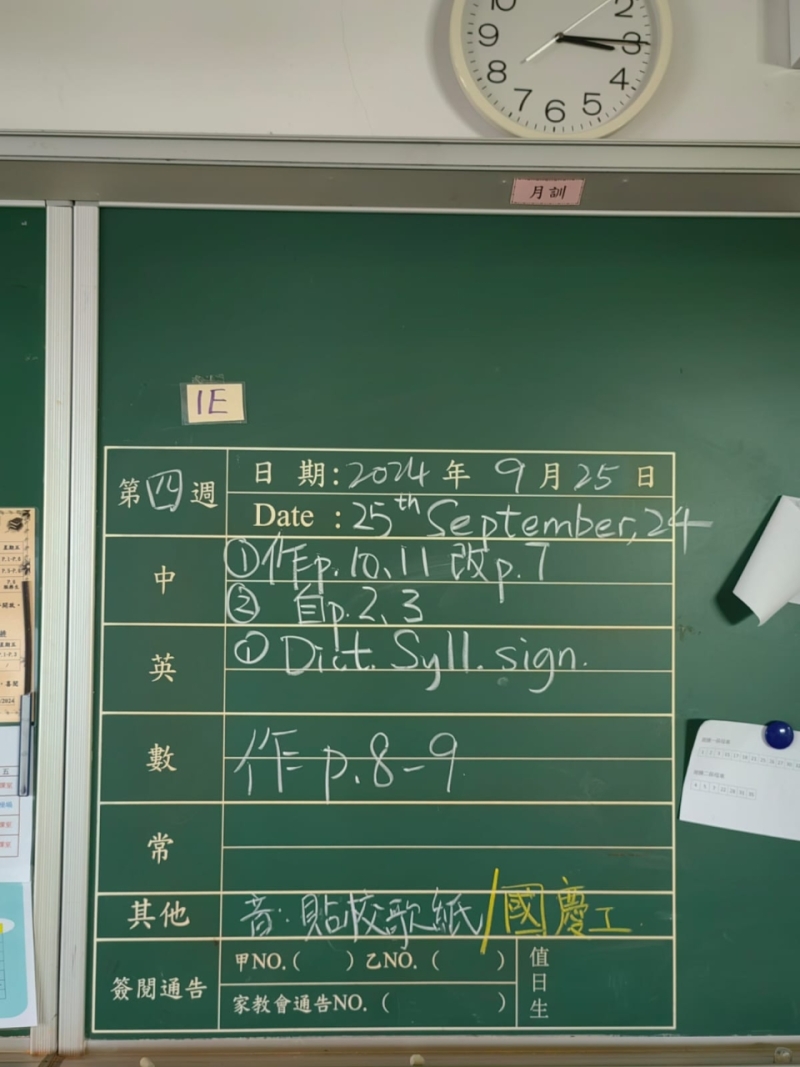 10 2
9 3
8 4
7 6 5
月訓
1E
第四週
日 期:2024年 9月25日
Date :25th September, 24
中
①作p.10、11 改p.7
② 自p.2、3
英
① Dict. Syll. sign.
數
作 p.8-9
常
其他
音:貼校歌紙/國慶工
簽閱通告
甲NO.( ) 乙NO.( )
家教會通告NO.( )
值日生